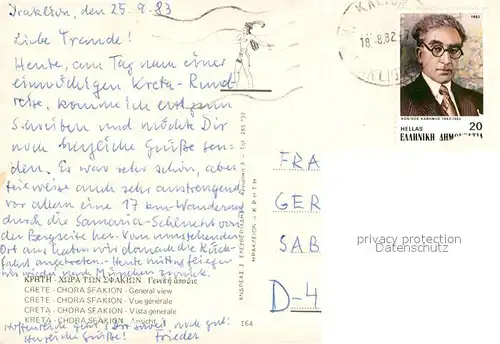 Iraklion, den 25.9.83
Liebe Traude!
Heute, am Tag nach einer
einwöchigen Kreta-Rund-
reise, komme ich erst zum
Schreiben und möchte Dir
noch herzliche Grüße sen-
den. Es war sehr schön, aber
teilweise auch sehr anstrengend
vor allem eine 17 km-Wanderung
durch die Samaria-Schlucht von
der Bergseite her. Vom umstehenden
Ort aus haben wir damals die Rück-
fahrt angetreten. Heute mittag fliegen
wir wieder nach München zurück.
ΚΡΗΤΗ - ΧΩΡΑ ΤΩΝ ΣΦΑΚΙΩΝ Γενική άποψις
CRETE - CHORA SFAKION - General view
CRETE - CHORA SFAKION - Vue générale
CRETA - CHORA SFAKION - Vista generale
KRETA - CHORA SFAKION - Ansicht
164
Hoffentlich geht's Dir soweit noch gut!
Herzliche Grüße! Frieder
ΗΡΑΚΛΕΙΟΝ - ΚΡΗΤΗ
FRA
GER
SAB
D-4
1983
ΚΩΝ/ΝΟΣ ΚΑΒΑΦΗΣ 1863-1933
HELLAS 20
ΕΛΛΗΝΙΚΗ ΔΗΜΟΚΡΑΤΙΑ
privacy protection
Datenschutz